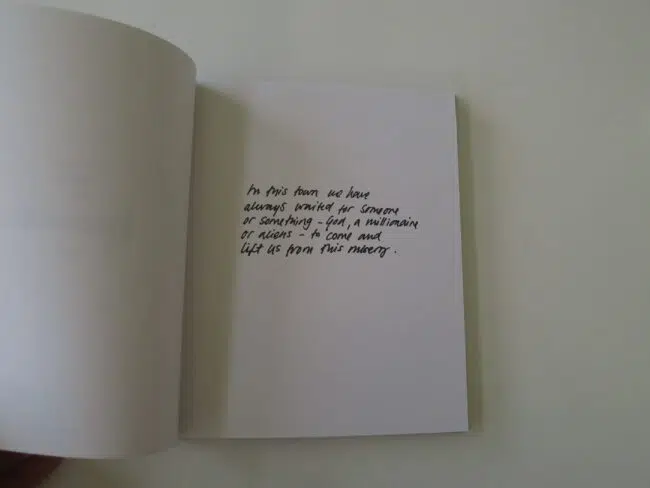 In this town we have
always waited for someone
or something – God, a millionaire
or aliens – to come and
lift us from this misery.